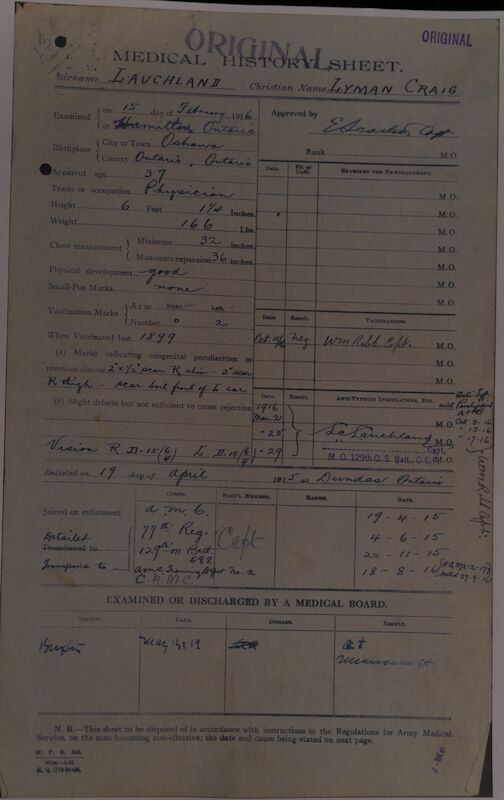 ORIGINAL
ORIGINAL
MEDICAL HISTORY SHEET.
Surname LAUCHLAND Christian Name LYMAN CRAIG
Examined { on 15 day of February 1916
at Hamilton Ontario
Approved by
Capt
Rank M.O.
Birthplace { City or Town Oshawa
County Ontario, Ontario
Apparent age 37
Trade or occupation Physician
Height 6 Feet 1¼ Inches
Weight 166 Lbs.
Chest measurement { Minimum 32 inches
Maximum expansion 36 inches
Physical development good
Small-Pox Marks none
Vaccination Marks { Arm Right Left
Number 0 2
When Vaccinated last 1899
(a) Marks indicating congenital peculiarities or
previous disease 2" x 1/2" scar R shin - 2" scar
R thigh - scar boil front of L ear
(b) Slight defects but not sufficient to cause rejection
Vision R D-15 L D-15
Date. Fit or Unfit. EXAMINED FOR RE-ENGAGEMENT.
M.O.
M.O.
M.O.
M.O.
M.O.
M.O.
Date. Result. VACCINATIONS.
Oct neg Wm Robb Capt. M.O.
M.O.
M.O.
Date. Result. ANTI-TYPHOID INOCULATIONS, ETC.
1916
Mar. 21 M.O.
" 25 Lauchland M.O.
" 29 Capt. M.O.
M.O. 129th O.S. Batt., C.E.F.
Oct 3-16
" 13-16
" 17-16
Wm Robb Capt.
Enlisted on 19 day of April 1915 at Dundas Ontario
CORPS. REGT'L NUMBER. RANKS. DATE.
Joined on enlistment A.M.C. 19-4-15
Detailed 77th Reg. Capt 4-6-15
Transferred to 129th OS Batt. CEF 20-11-15
Transferred to AMC Training Depot No. 2 18-8-16
C.A.M.C.
EXAMINED OR DISCHARGED BY A MEDICAL BOARD.
STATION. DATE. DISEASE. RESULT.
Buxton May 19
N.B.—This sheet to be disposed of in accordance with instructions in the Regulations for Army Medical
Service, on the man becoming non-effective; the date and cause being stated on next page.